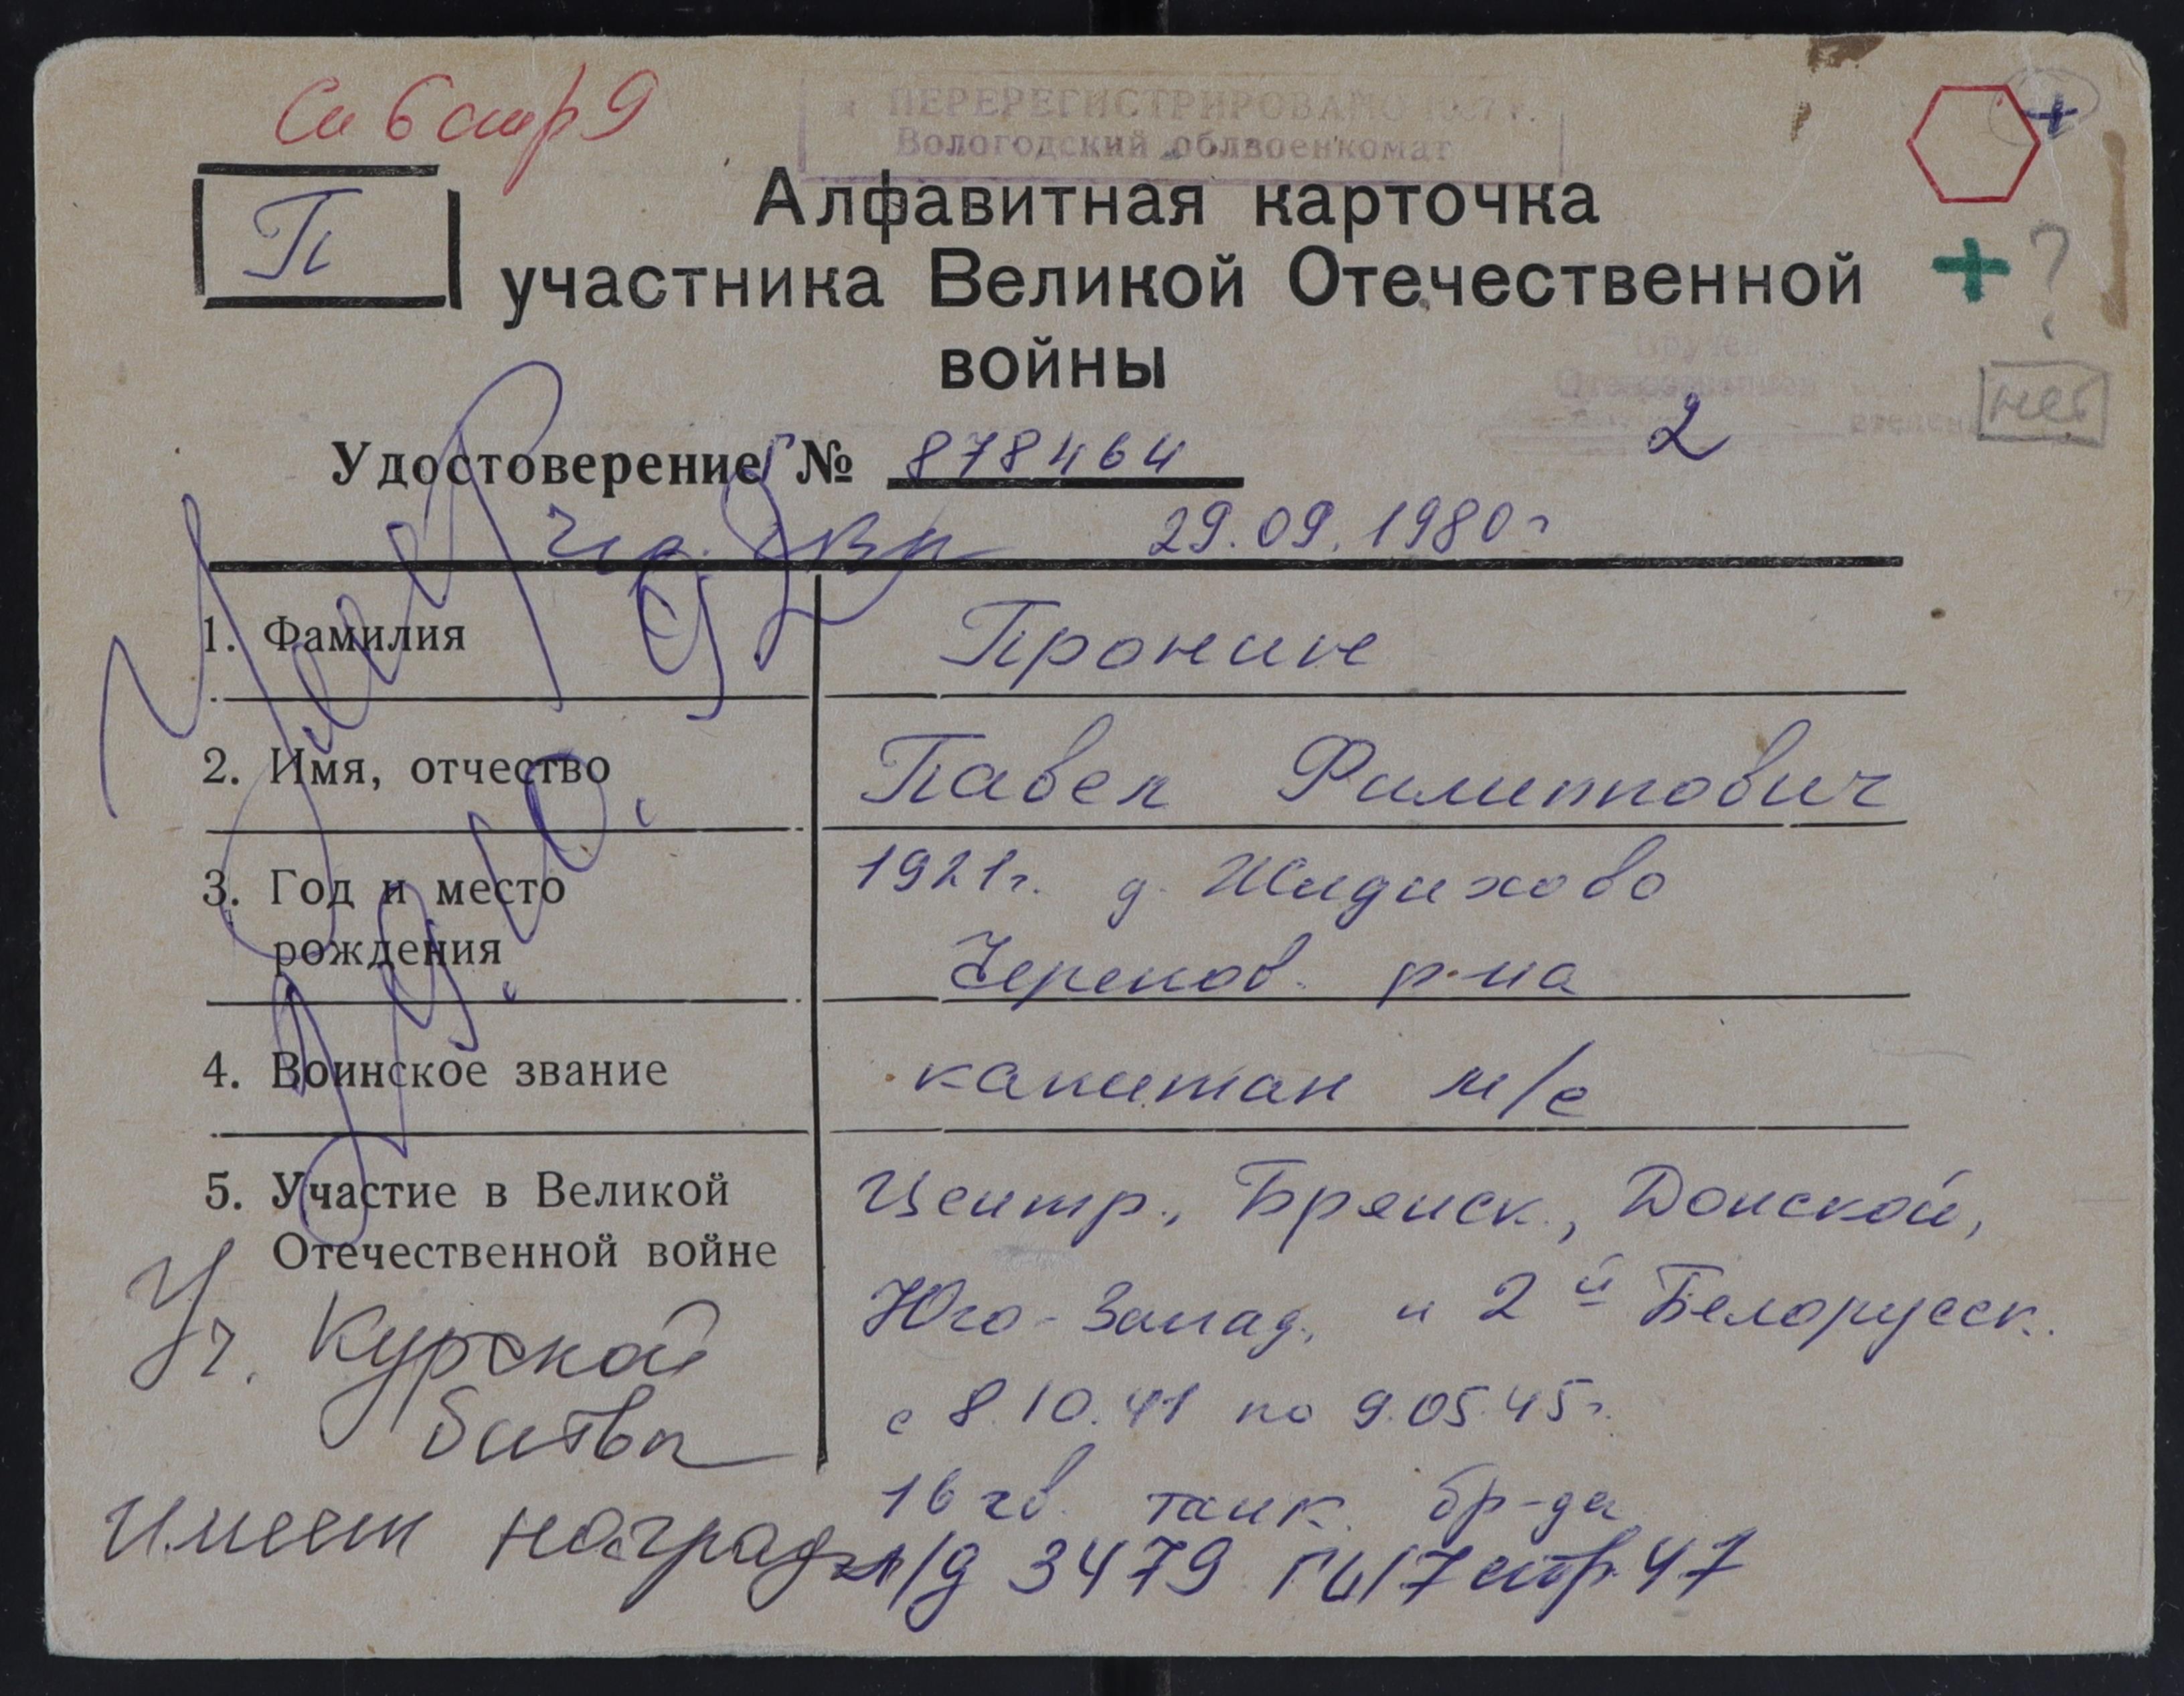 Сп 6 стр 9
ПЕРЕРЕГИСТРИРОВАНО
Вологодский облвоенкомат
П
Алфавитная карточка
участника Великой Отечественной
войны
?
нет
Удостоверение № 878464
2
29.09.1980г
1. Фамилия Пронин
2. Имя, отчество Павел Филиппович
3. Год и место 1921г. д. Жидихово
рождения Черепов. р-на
4. Воинское звание капитан м/с
5. Участие в Великой Центр., Брянск., Донской,
Отечественной войне Юго-Запад. и 2й Белорусск.
Уч. Курской
битвы
с 8.10.41 по 9.05.45г.
16 гв. танк. бр-да
Имеет награды
л/д 3479 стр. 47